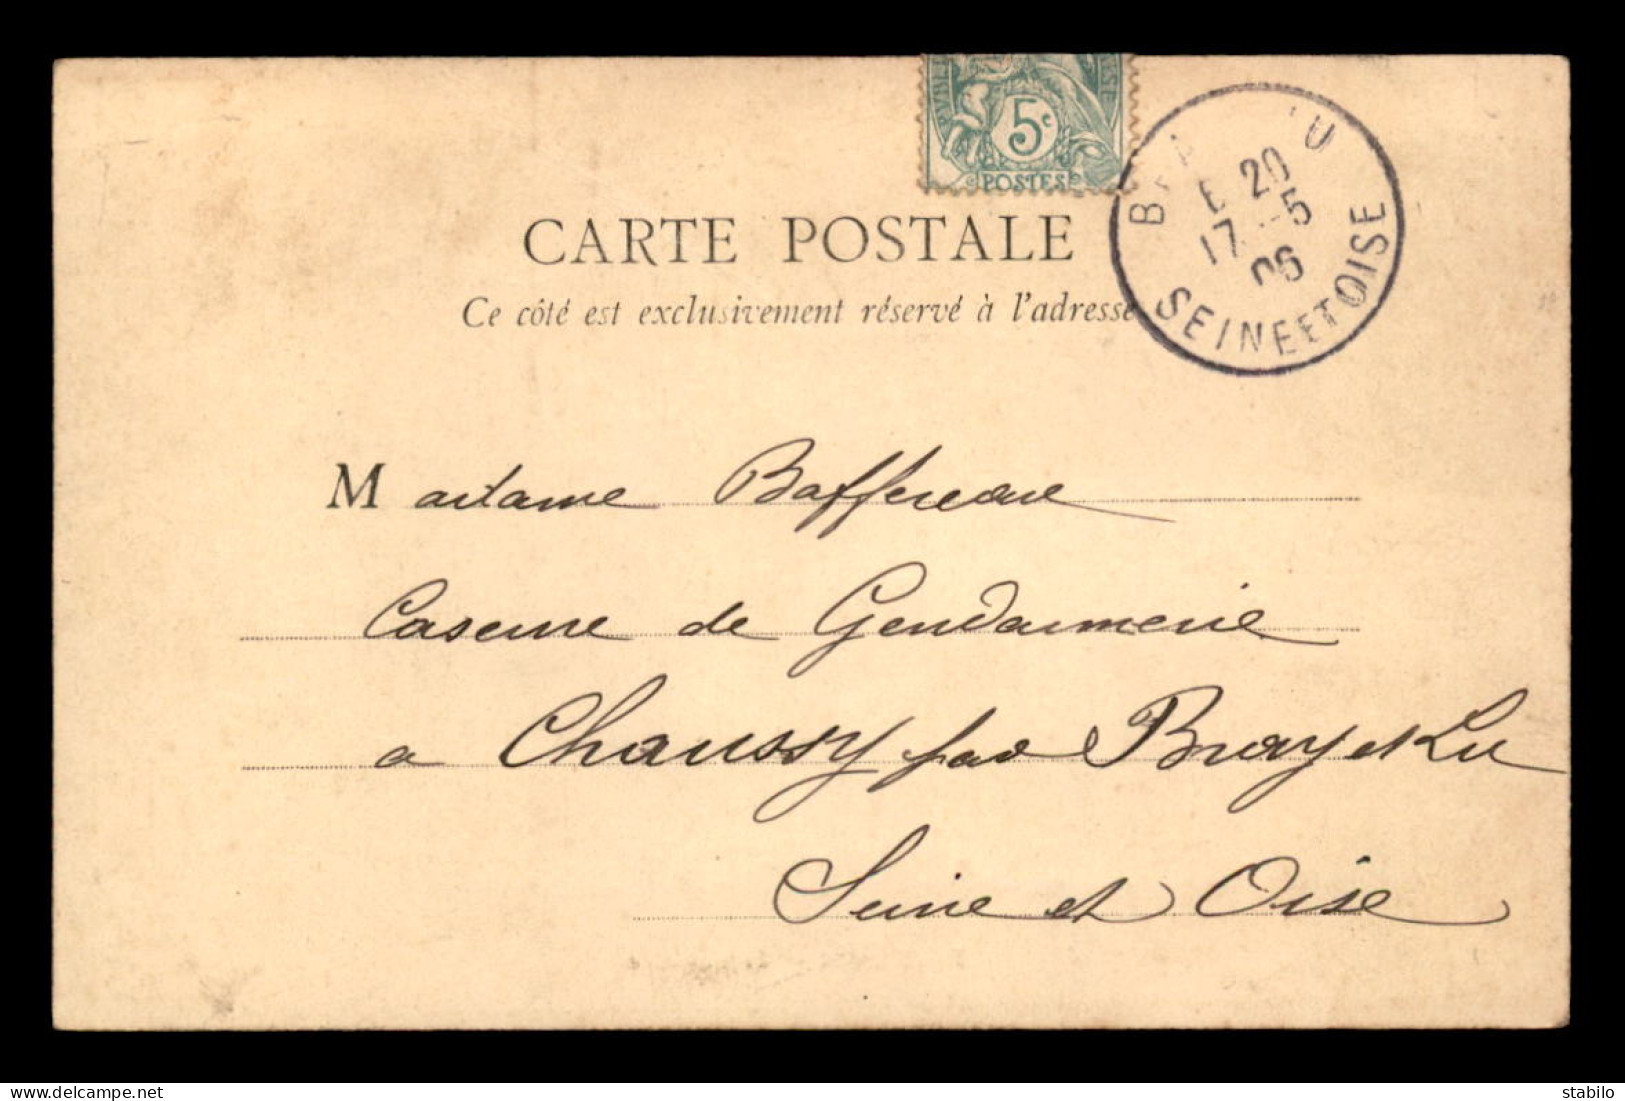 5c
POSTES
E 20
17 -5
06
SEINE ET OISE
CARTE POSTALE
Ce côté est exclusivement réservé à l'adresse
Madame Baffereau
Caserne de Gendarmerie
a Chaussy par Bray et Lu
Seine et Oise
stabilo